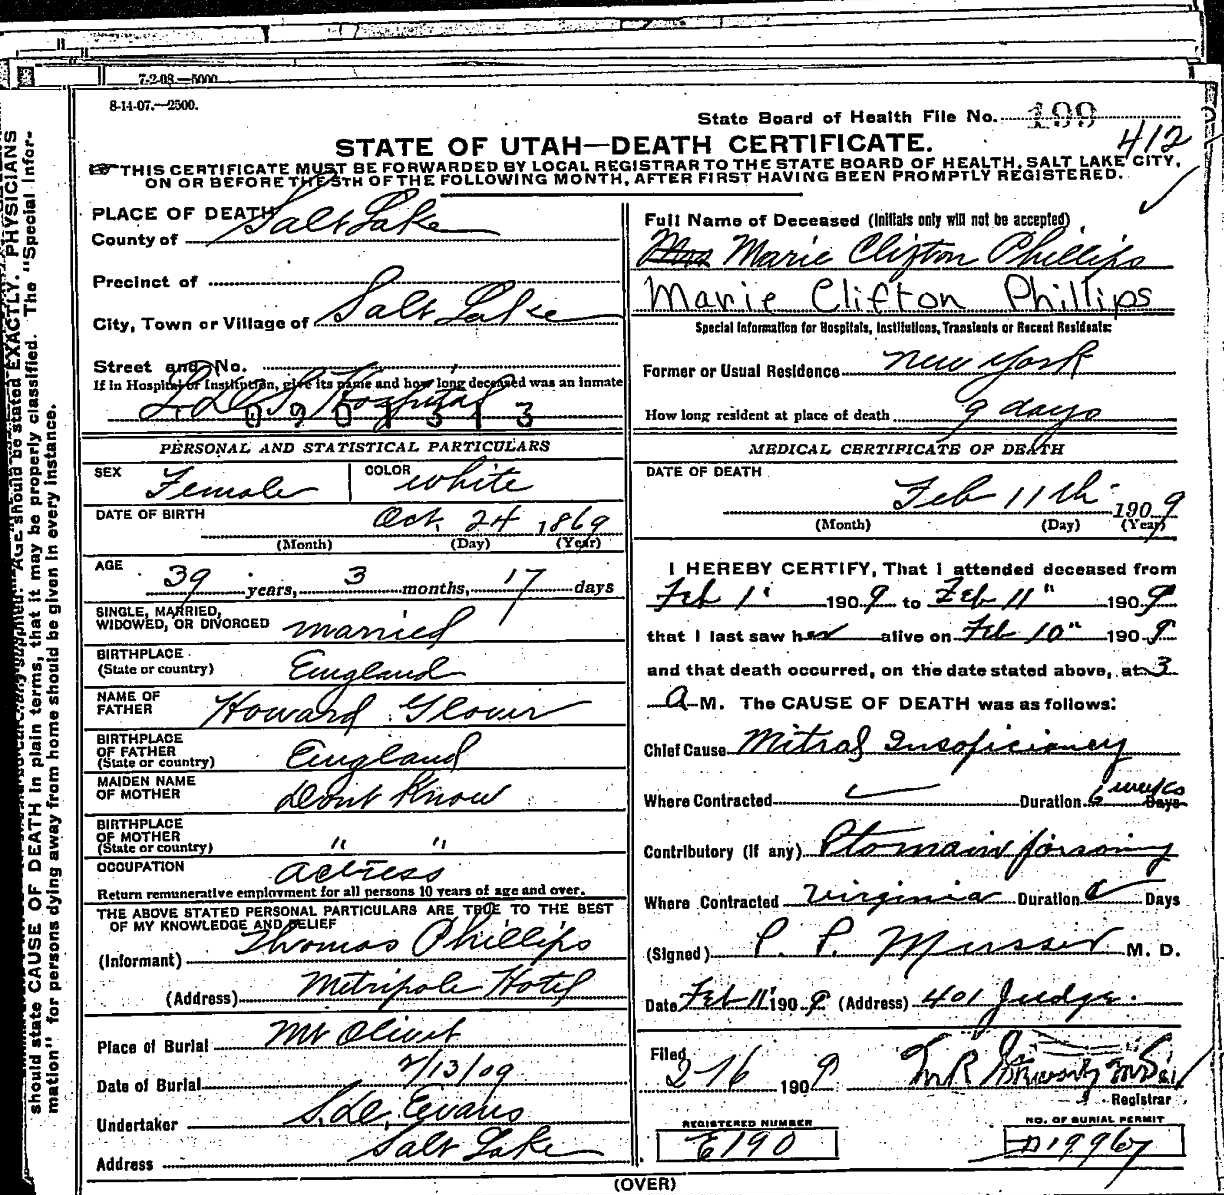 7-2-08.—5000
8-14-07.—2500.
State Board of Health File No. 199
STATE OF UTAH—DEATH CERTIFICATE.
412
THIS CERTIFICATE MUST BE FORWARDED BY LOCAL REGISTRAR TO THE STATE BOARD OF HEALTH, SALT LAKE CITY,
ON OR BEFORE THE 5TH OF THE FOLLOWING MONTH, AFTER FIRST HAVING BEEN PROMPTLY REGISTERED.
PLACE OF DEATH
County of Salt Lake
Precinct of
City, Town or Village of Salt Lake
Street and No.
If in Hospital or Institution, give its name and how long deceased was an inmate
L.D.S. Hospital
0901313
PERSONAL AND STATISTICAL PARTICULARS
SEX Female COLOR White
DATE OF BIRTH Oct. 24, 1869
(Month) (Day) (Year)
AGE
39 years, 3 months, 17 days
SINGLE, MARRIED,
WIDOWED, OR DIVORCED married
BIRTHPLACE
(State or country) England
NAME OF
FATHER Howard Glover
BIRTHPLACE
OF FATHER
(State or country) England
MAIDEN NAME
OF MOTHER Dont Know
BIRTHPLACE
OF MOTHER
(State or country) " "
OCCUPATION actress
Return remunerative employment for all persons 10 years of age and over.
THE ABOVE STATED PERSONAL PARTICULARS ARE TRUE TO THE BEST
OF MY KNOWLEDGE AND BELIEF
(Informant) Thomas Phillips
(Address) Metripole Hotel
Place of Burial Mt Olivet
Date of Burial 2/13/09
Undertaker S. D. Evans
Address Salt Lake
Full Name of Deceased (Initials only will not be accepted)
Mrs Marie Clifton Phillips
Marie Clifton Phillips
Special Information for Hospitals, Institutions, Transients or Recent Residents:
Former or Usual Residence New York
How long resident at place of death 9 days
MEDICAL CERTIFICATE OF DEATH
DATE OF DEATH
Feb 11th 1909
(Month) (Day) (Year)
I HEREBY CERTIFY, That I attended deceased from
Feb 1" 1909 to Feb 11" 1909
that I last saw her alive on Feb 10" 1909
and that death occurred, on the date stated above, at 3
A M. The CAUSE OF DEATH was as follows:
Chief Cause Mitral Insoficiancy
Where Contracted Duration 6 weeks Days
Contributory (if any) Ptomain poisoning
Where Contracted Virginia Duration Days
(Signed) P. P. Musser M. D.
Date Feb 11" 1909 (Address) 401 Judge.
Filed
2-16 1909
Registrar
REGISTERED NUMBER
E190
NO. OF BURIAL PERMIT
D19967
(OVER)
AGE should be stated EXACTLY. PHYSICIANS
should state CAUSE OF DEATH in plain terms, that it may be properly classified. The "Special Infor-
mation" for persons dying away from home should be given in every instance.